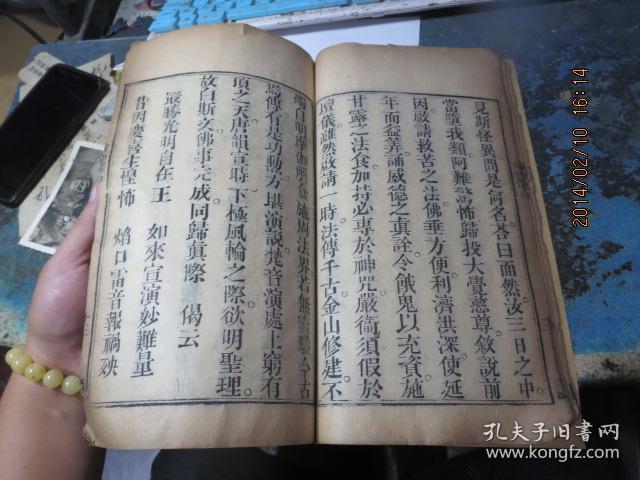 見斯怪異問是何名荅曰面然汝三日之中
當墮我類阿難驚怖歸投大學慈尊敘說前
因啟請救苦之法佛垂方便利濟洪深使延
年而益筭誦威德之真詮令餓鬼以充資施
甘露之法食加持必專於神咒嚴衞須假於
壇儀雖然啟請一時法傳千古金山修建不
為傳有是功勳方堪演說梵音演處上窮有
頂之天唐韻宣時下極風輪之際欲明聖理
故自斯文佛事完成同歸真際 偈云
最勝光明自在王 如來宣演妙難量
昔因慶喜生惶怖 焰口雷音報禍殃
2014/02/10 16:14
孔夫子旧書网
www.kongfz.com